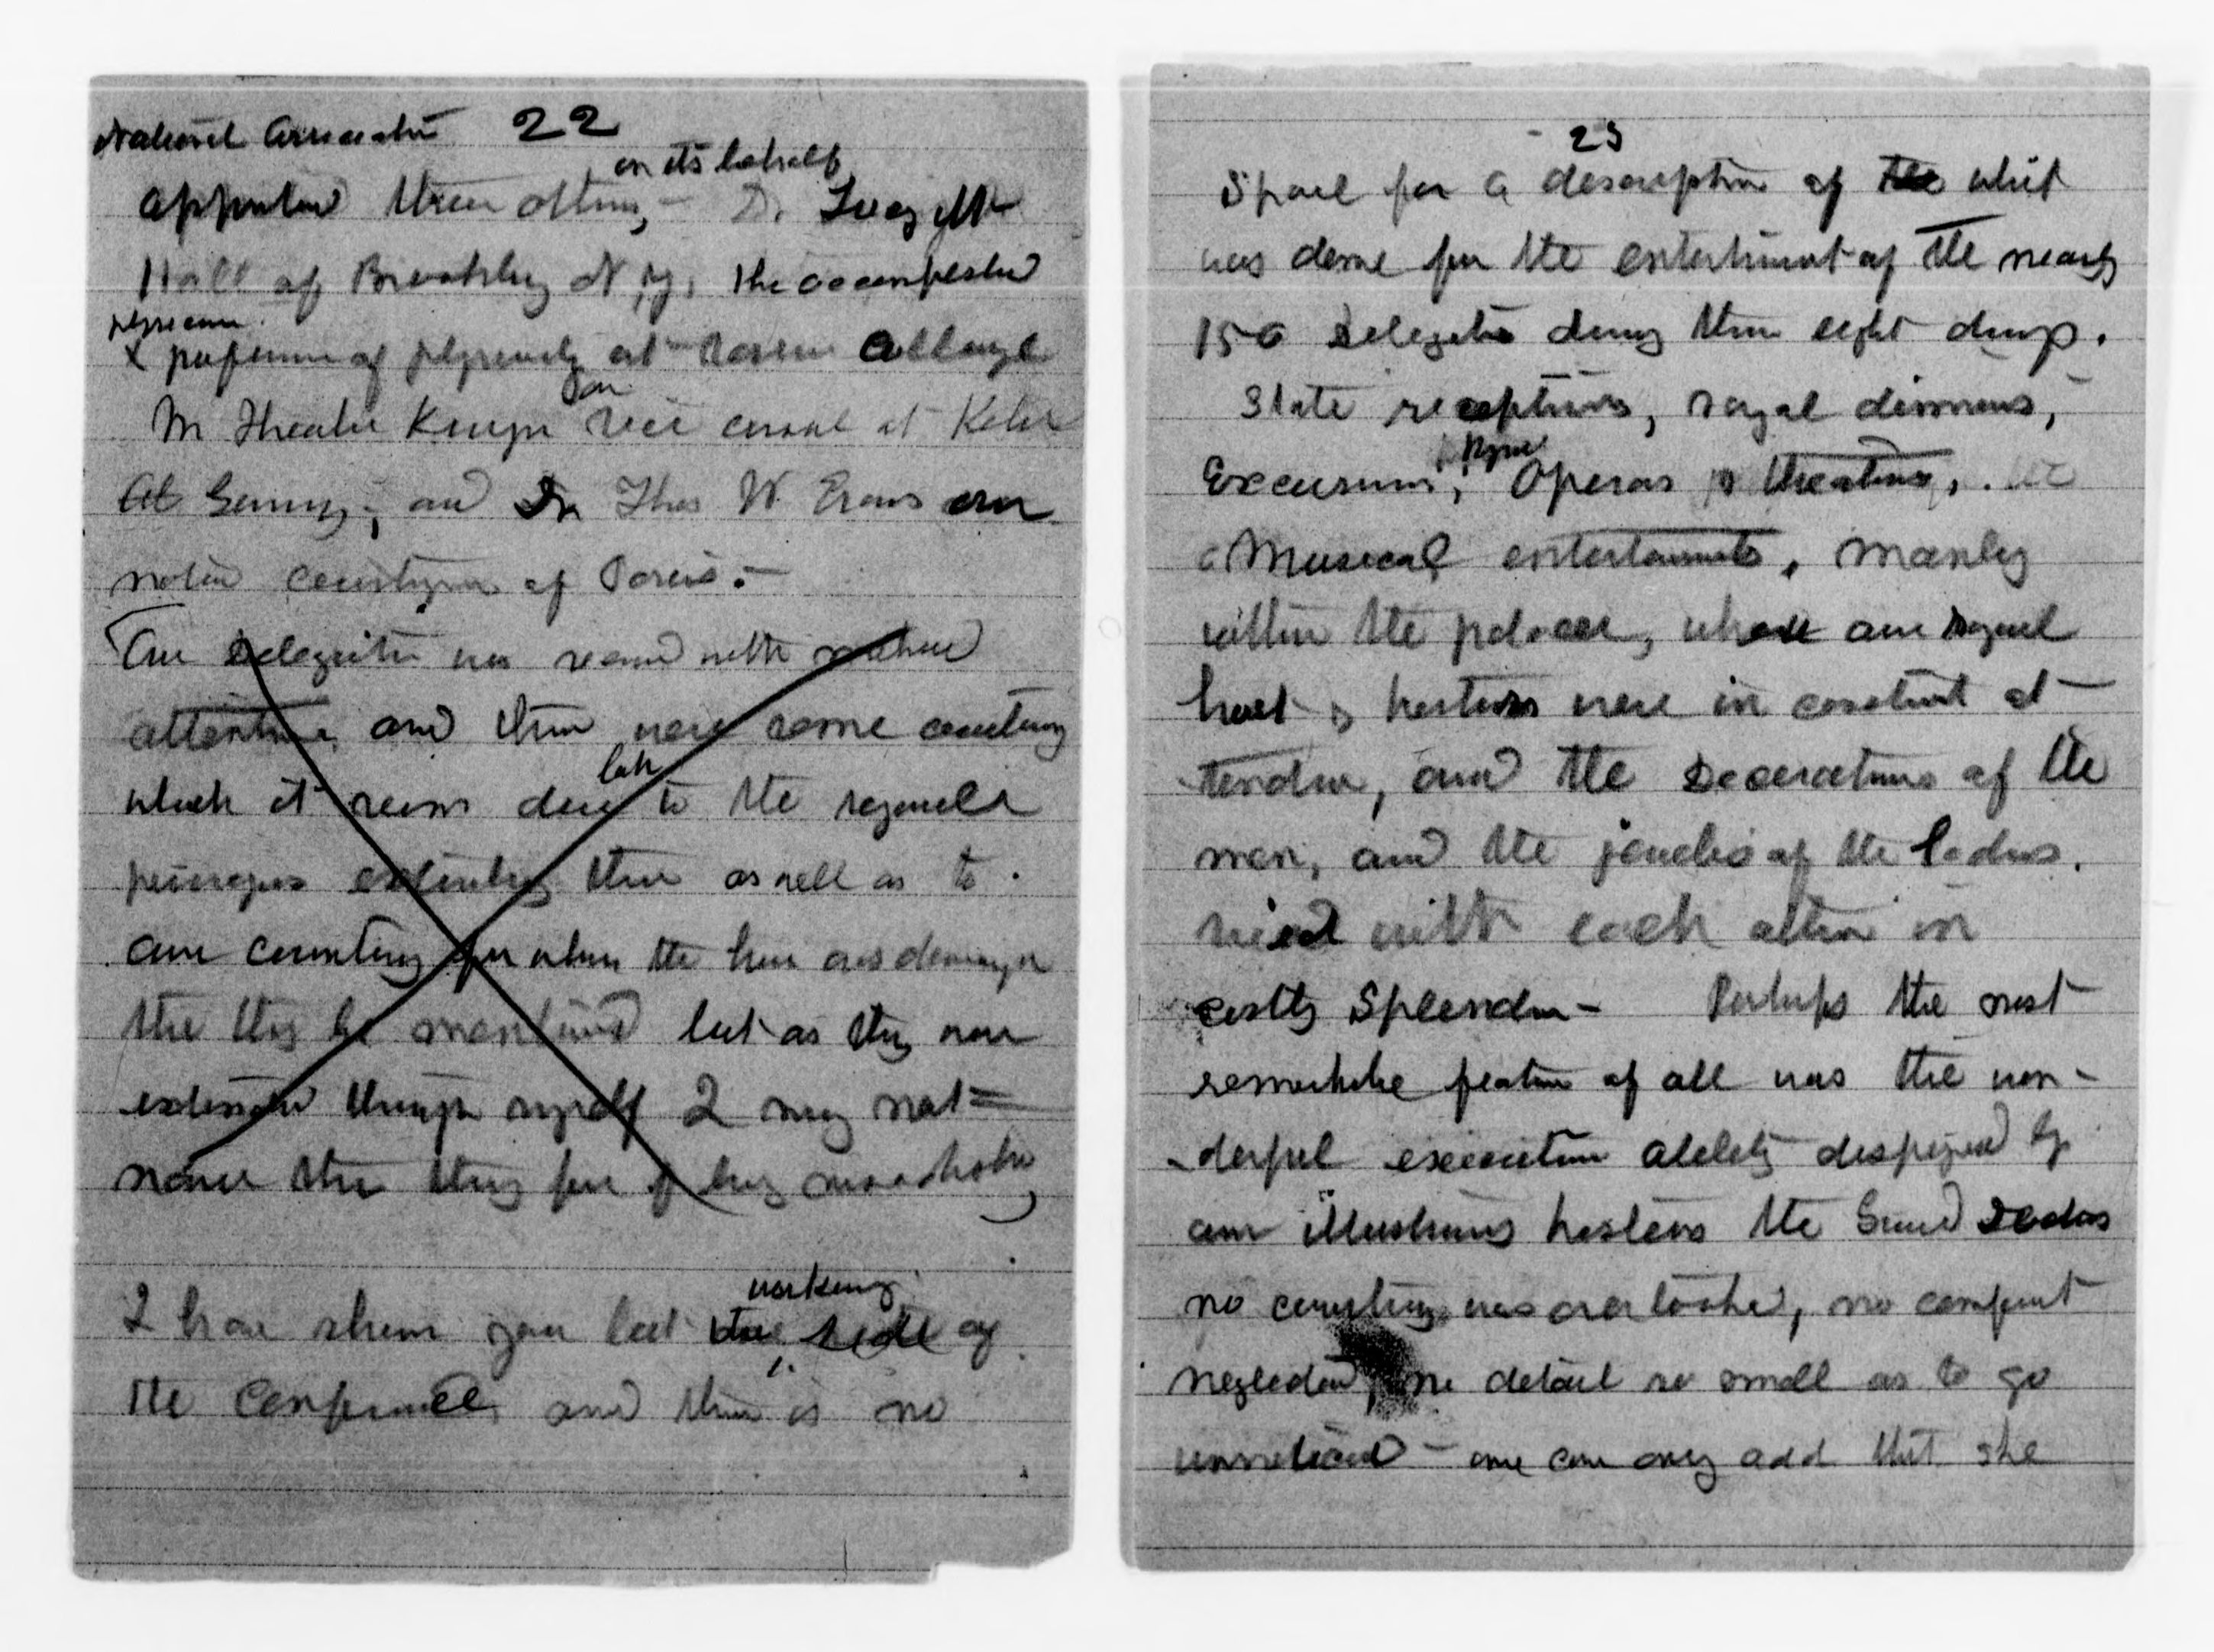 National Association 22
on its behalf
appointed three others, - Dr. Lucy M
Hall of Brooklyn N.Y, the accomplished
physician
& professor of physiology at Vassar College
Mr Theodor
vice consul at
at Germy; and Dr Thos W Evans our
noted countryman of Paris. -
Our delegation was received with marked
attention, and there were some courtesies
which it seems due both to the
extending them as well as to
our country for whom the honor was designed
that they be mentioned but as they were
extended through myself I may not
name them they
working
I have shown you but the side of
the Conference, and there is no
23
space for a description of the what
was done for the entertainment of the nearly
150 delegates during those eight days.
State receptions, royal dinners,
Excursions, Operas & theatres,
Musical entertainments, mainly
within the palace, where our royal
host & hostess were in constant at-
-tendance, and the decorations of the
men, and the jewels of the ladies.
vied with each other in
costly splendor - Perhaps the most
remarkable feature of all was the won-
-derful executive ability displayed by
our illustrious hostess the Grand Duchess
no courtesy was overlooked, no comfort
neglected, no detail so small as to go
unnoticed - one can only add that she